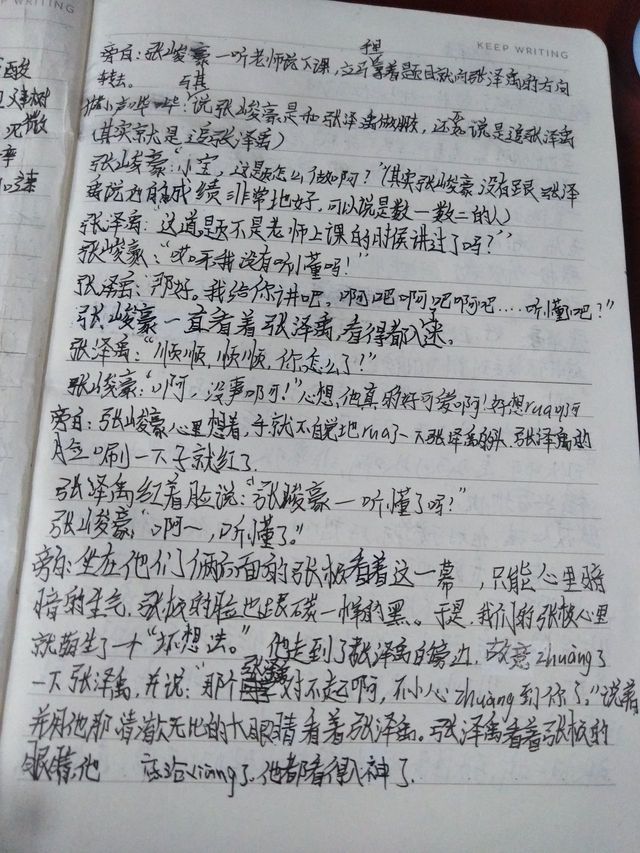 KEEP WRITING
酸
旁白:张峻豪一听老师说下课,立马拿着题目就向张泽禹的方向
转去。与其
说张峻豪是和张泽禹做朋友,还不如说是追张泽禹
(其实就是追张泽禹)
张峻豪:“小宝,这题怎么做啊?”(其实张峻豪没有跟张泽
禹说过自己成绩非常地好,可以说是数一数二的人)
张泽禹:“这道题不是老师上课的时候讲过了吗?”
张峻豪:“哎呀我没有听懂吗!”
张泽禹:那好。我给你讲吧,啊吧啊吧啊吧....听懂了吧?”
张峻豪一直看着张泽禹,看得都入迷。
张泽禹:“顺顺,顺顺,你怎么了?”
张峻豪:“啊,没事啊!”心想,他真的好可爱啊!好想rua他的
旁白:张峻豪心里想着,手就不自觉地rua了一下张泽禹的头,张泽禹的
脸唰一下子就红了.
张泽禹红着脸说:“张峻豪——听懂了吗?”
张峻豪:“啊~,听懂了。”
旁白:坐在他们俩后面的张极看着这一幕,只能心里暗
暗的生气,张极的脸也跟碳一样的黑。于是,我们的张极心里
就萌生了一个“坏想法。”他走到了张泽禹的旁边,故意zhuang了
一下张泽禹,并说:“那个张泽禹对不起啊,不小心zhuang到你了。”说着
并用他那清澈无比的大眼睛看着张泽禹。张泽禹看着张极的
眼睛,他 xiang了.他都看得入神了.